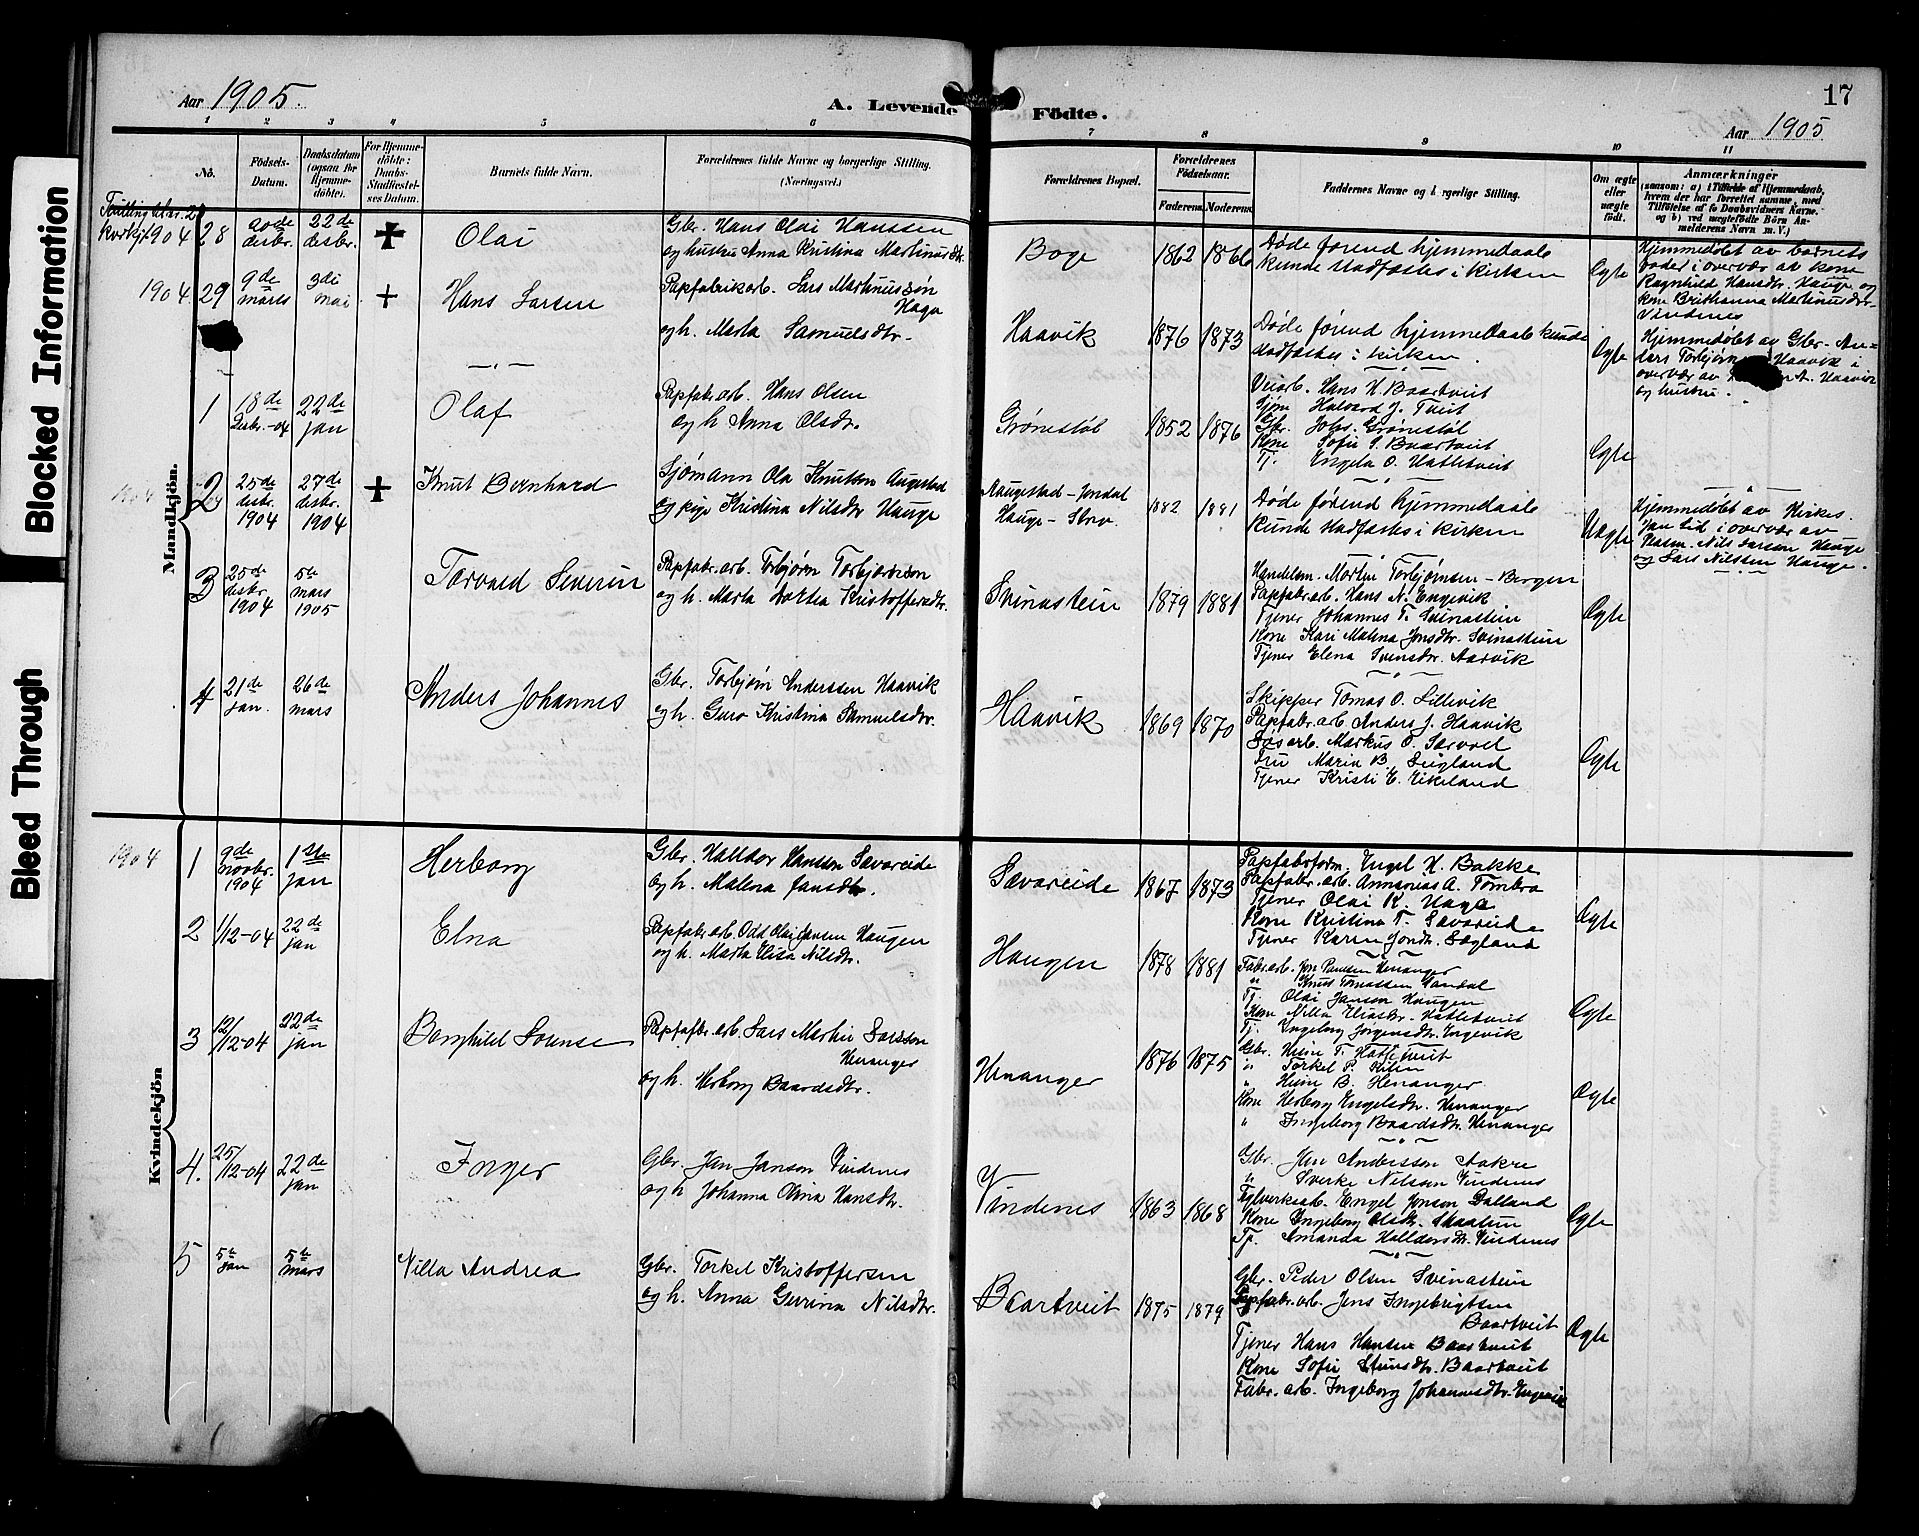 Blocked Information
Bleed Through
Aar 1905.
A. Levende Födte.
17
Aar 1905
1 2 3 4 5 6 7 8 9 10 11
No.
Födsels-
Datum.
Daabsdatum
(ogsaa for
Hjemme-
döbte).
For Hjemme-
döbte:
Daabs-
Stadfæstel-
ses Datum.
Barnets fulde Navn.
Forældrenes fulde Navne og borgerlige Stilling.
(Næringsvei.)
Forældrenes Bopæl.
Forældrenes
Födselsaar.
Faderens. Moderens.
Faddernes Navne og borgerlige Stilling.
Om ægte
eller
uægte
födt.
Anmærkninger
(saasom: a) i Tilfælde af Hjemmedaab,
hvem der har forrettet samme, med
Tilföielse af to Daabsvidners Navne.
og b) ved uægtefödte Börn An-
melderens Navn m. V.)
Mandkjön.
1904 28
20de desbr.
22de desbr.
Olai
Gbr. Hans Olai Hanssen
og hustru Anna Kristina Martinusdtr.
Boge
1862 1866
Døde førend hjemmedaab
kunde stadfæstes i kirken
Ægte
Hjemmedøbt av barnets
bades i overvær av kone
Ragnhild Hansdtr. Hauge og
kone Brithanna Martinusdtr.
Vindenes
1904 29
9de marts
3di mai
Hans Larsen
Papfabrikarb. Lars Martinussøn
Haga
og h. Marta Samuelsdtr.
Haavik
1876 1873
Døde førend hjemmedaab kunde
stadfæstes i kirken.
Ægte
Hjemmedøbt av Gbr. An-
ders Torbjørns Haavik i
overvær av A. Haavik
og hustru.
1
18de Desbr.-04
22de jan
Olaf
Papfabr. arb. Hans Olsen
og h Anna Olsdtr.
Grønestøl
1852 1876
Veiarb. Hans H. Baartveit
Halvard J. Tveit
Gbr. Johs. Grønestøl
Kone Sofie S. Baartveit
Tj. Engela O. Hatletveit
Ægte
1904 2
25de desbr. 1904
27de desbr. 1904
Knut Bernhard
Sjømann Ola Knutson Augestad
og pige Kristina Nilsdtr Hauge
Augestad - Jondal
Hauge - Strv.
1882 1881
Døde førend hjemmedaab
kunde stadfæstes i kirken
Uægte
Hjemmedøbt av Kirkes.
Jan Lid i overvær av
Nils Larsen Hauge
og Lars Nilssen Hauge.
3
25de desbr. 1904
5te mars 1905
Torvald Severin
Papfabr. arb. Torbjørn Torbjørnson
og h. Marta Dortea Kristoffersdtr.
Svinastein
1879 1881
Handelsm. Morten Torbjørnsen - Bergen
Papfabr. arb. Hans N. Engevik
Tjener Johannes T. Svinastein
Kone Kari Malena Jonsdtr. Svinastein
Tjener Elena Svensdtr. Aarvik
Ægte
4
21de jan.
26de mars
Anders Johannes
Gbr. Torbjørn Anderssen Haavik
og h. Guro Kristina Samuelsdtr.
Haavik
1869 1870
Skipper Tomas O. Lillevik
Papfabr. arb Anders J. Haavik
Løsarb. Markus O. Sørvoll
Fru Maria B. Seigland
Tjener Kristi E. Eikeland
Ægte
Kvindekjön
1904 1
9de novbr. 1904
1ste jan
Herborg
Gbr. Halldor Hansson Sævareide
og h. Malena Jansdtr.
Sævareide
1867 1873
Papfabrform. Engel H. Bakke
Papfabr. arb. Annanias A. Tombra
Tjener Olai K. Haga
Kone Kristina T. Sævareide
Tjener Karen Jondtr. Sægland
Ægte
2
1/12-04
22de jan
Elna
Papfabr. arb. Odd Olai Jansen Haugen
og h. Marta Elisa Nilsdtr.
Haugen
1878 1881
Fabr. arb. Jon Paulsen Henanger
" Knut Tomassen Vandal
Tj. Olai Janson Haugen
Kone Nilla Eliasdtr. Hatletveit
Tj. Ingeborg Jørgensdtr. Engevik
Ægte
3
12/12-04
22de jan
Borghild Lounse
Papfabr. arb. Lars Martin Larsson
Henanger
og h. Herborg Baardsdtr.
Henanger
1876 1875
Gbr. Heine T. Hatletveit
" Torkel P. Kilen
" Heine B. Henanger
Kone Herborg Engelsdtr. Henanger
" Ingeborg Baardsdtr. Henanger
Ægte
4.
25/12-04
22de jan
Inger
Gbr. Jan Janson Vindenes
og h Johanna Olina Hansdtr.
Vindenes
1863 1868
Gbr. Jon Andersson Aakre
" Sverke Nilson Vindenes
Teglverksarb. Engel Jonson Dalland
Kone Ingeborg Olsdtr. Skaatun
Tj. Amanda Halldorsdtr. Vindenes
Ægte
5
5te jan
5te mars
Nilla Andrea
Gbr. Torkel Kristoffersen
og h. Anna Gurina Nilsdtr.
Baartveit
1875 1879
Gbr. Peder Olsen Svinastein
Papfabr. arb. Jens Ingebrigtsen
Baartveit
Tjener Hans Hansen Baartveit
Kone Sofie Steinsdtr. Baartveit
Fabr. arb. Ingeborg Johannesdtr. Engevik
Ægte